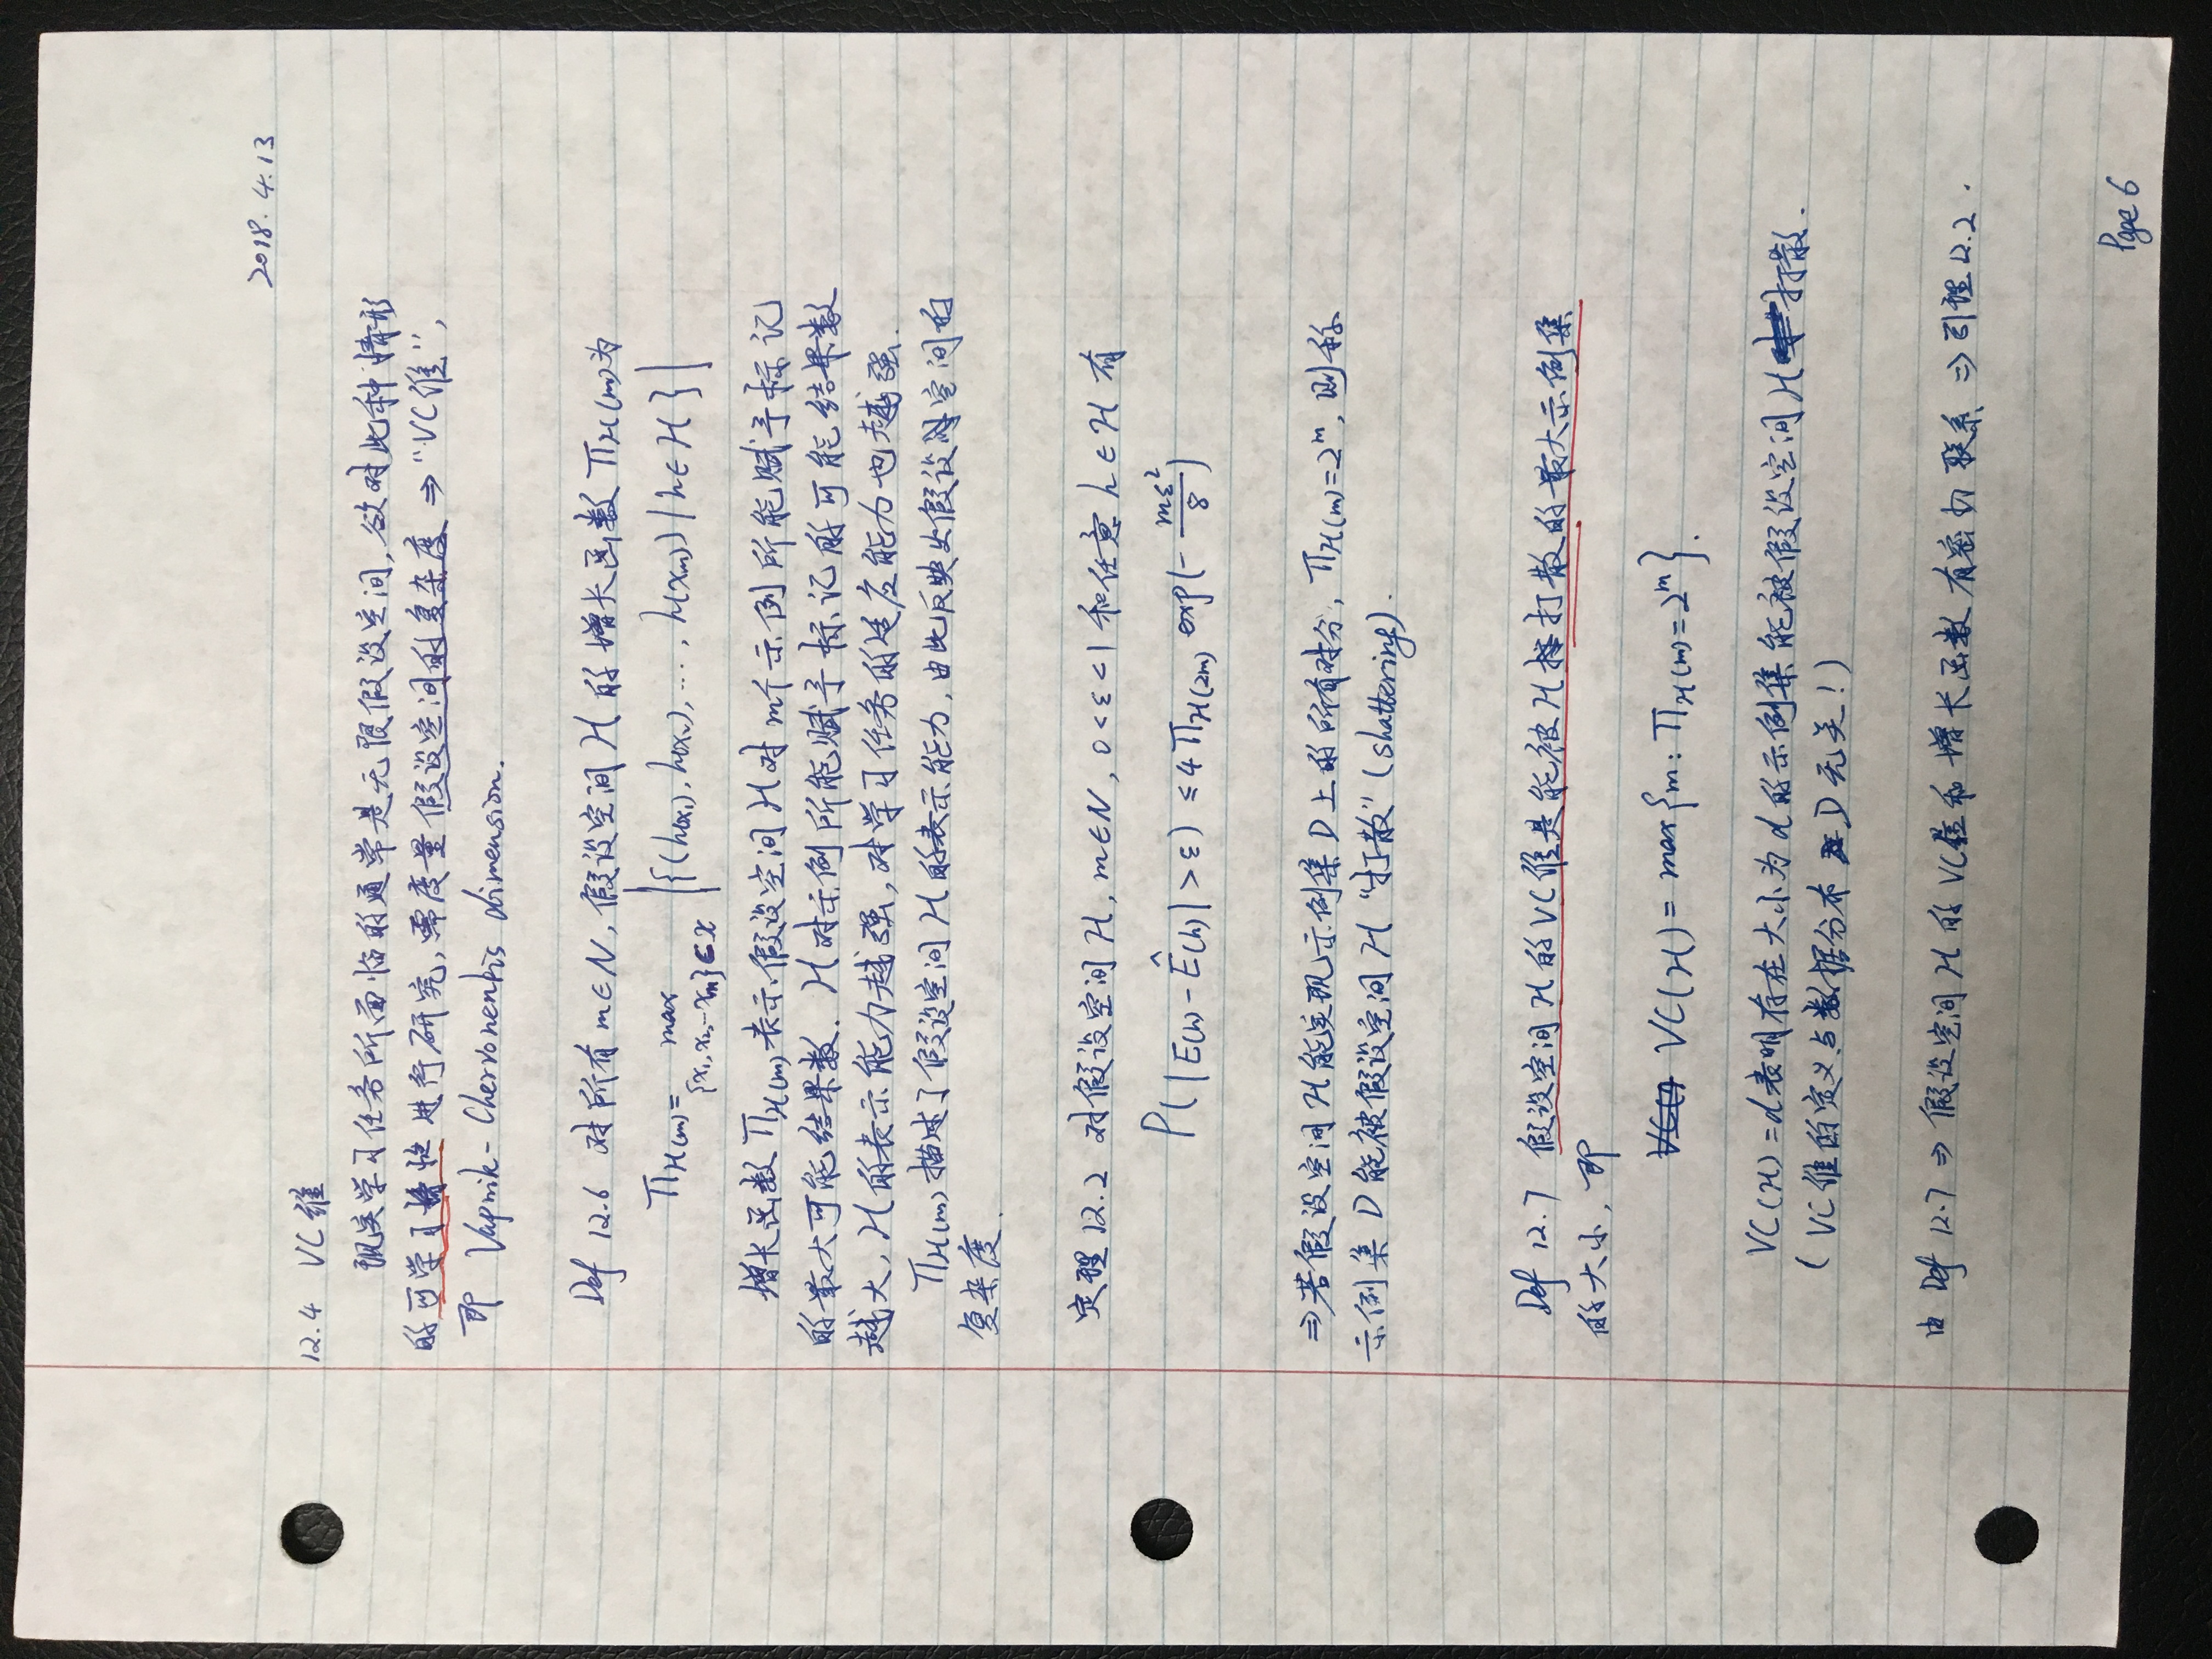 2018.4.13
12.4 VC维
现实学习任务所面临的通常是无限假设空间,欲对此种情形
的可学习性进行研究,需度量假设空间的复杂度 ⇒ "VC维",
即 Vapnik-Chervonenkis dimension.
Def 12.6 对所有 m∈N, 假设空间 H 的增长函数 Π_H(m)为
Π_H(m) = max_{{x₁,x₂,…xₘ}⊆X} |{(h(x₁), h(x₂), ..., h(xₘ)) | h∈H}|
增长函数 Π_H(m) 表示假设空间 H 对 m个示例所能赋予标记
的最大可能结果数. H对示例所能赋予标记的可能结果数
越大, H的表示能力越强,对学习任务的适应能力也越强.
Π_H(m) 描述了假设空间 H 的表示能力,由此反映出假设空间的
复杂度.
定理 12.2 对假设空间 H, m∈N, 0<ε<1 和任意 h∈H 有
P(|E(h) - Ê(h)| > ε) ≤ 4Π_H(2m) exp(- mε²/8)
⇒ 若假设空间 H 能实现示例集 D 上的所有对分, Π_H(m)=2^m, 则称
示例集 D 能被假设空间 H "打散" (shattering).
Def 12.7 假设空间 H 的 VC维是能被 H 打散的最大示例集
的大小, 即
VC(H) = max{m: Π_H(m)=2^m}.
VC(H)=d表明存在大小为 d 的示例集能被假设空间 H 打散.
(VC维的定义与数据分布 D 无关!)
由 Def 12.7 ⇒ 假设空间 H 的 VC维和增长函数有密切联系 ⇒ 引理12.2.
Page 6